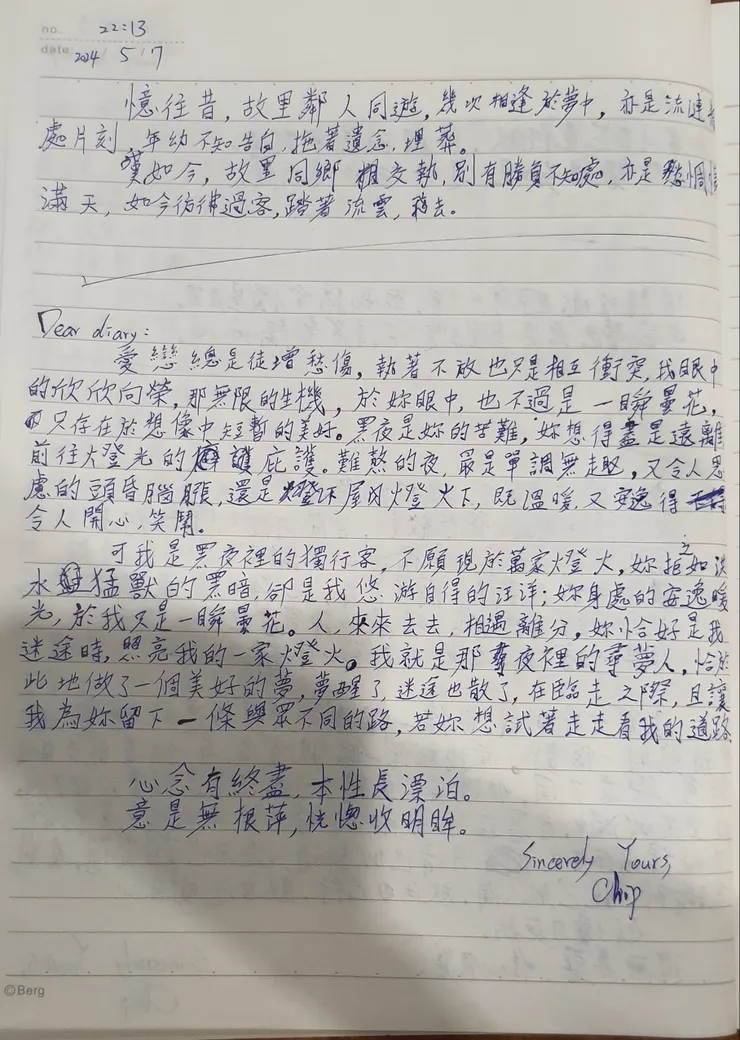 no. 22:13
date 2024 / 5 / 7
憶往昔，故里鄰人同遊，幾次相逢於夢中，亦是流連
處片刻 年幼不知告白，拖著遺念，埋葬。
嘆如今，故里同鄉相交執，別有勝負不知處，亦是惆悵
滿天，如今彷彿過客，踏著流雲，去。
Dear diary:
愛戀總是徒增愁傷，執著不放也只是相互衝突，我眼中
的欣欣向榮，那無限的生機，於妳眼中，也不過是一瞬曇花，
只存在於想像中短暫的美好。黑夜是妳的苦難，妳想得盡是遠離
前往燈光的庇護。難熬的夜，最是單調無趣，又令人思
慮的頭昏腦脹，還是屋內燈火下，既溫暖，又安逸得
令人開心，笑鬧。
可我是黑夜裡的獨行客，不願現於萬家燈火，妳拒之如淡
水猛獸的黑暗，卻是我悠游自得的汪洋；妳身處的安逸暖
光，於我只是一瞬曇花。人，來來去去，相遇離分，妳恰好是我
迷途時，照亮我的一家燈火。我就是那尋夜裡的尋夢人，恰於
此地做了一個美好的夢，夢醒了，迷途也散了，在臨走之際，且讓
我為妳留下一條與眾不同的路，若妳想試著走走看我的道路
心念有終盡，本性長漂泊。
意是無根萍，恍惚收明眸。
Sincerely Yours,
Chip
©Berg